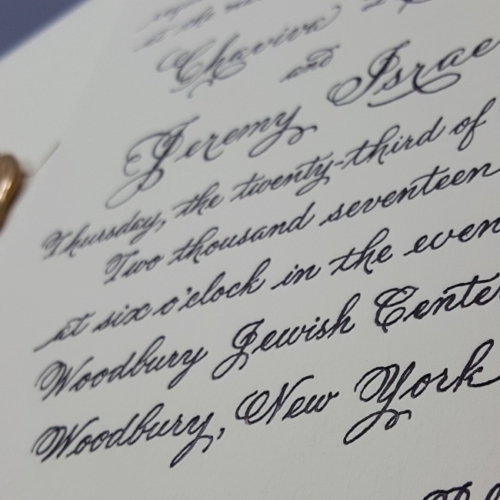 at the
Chaviva
and
Jeremy Israe
Thursday, the twenty-third of
Two thousand seventeen
at six o'clock in the even
Woodbury Jewish Cente
Woodbury, New York